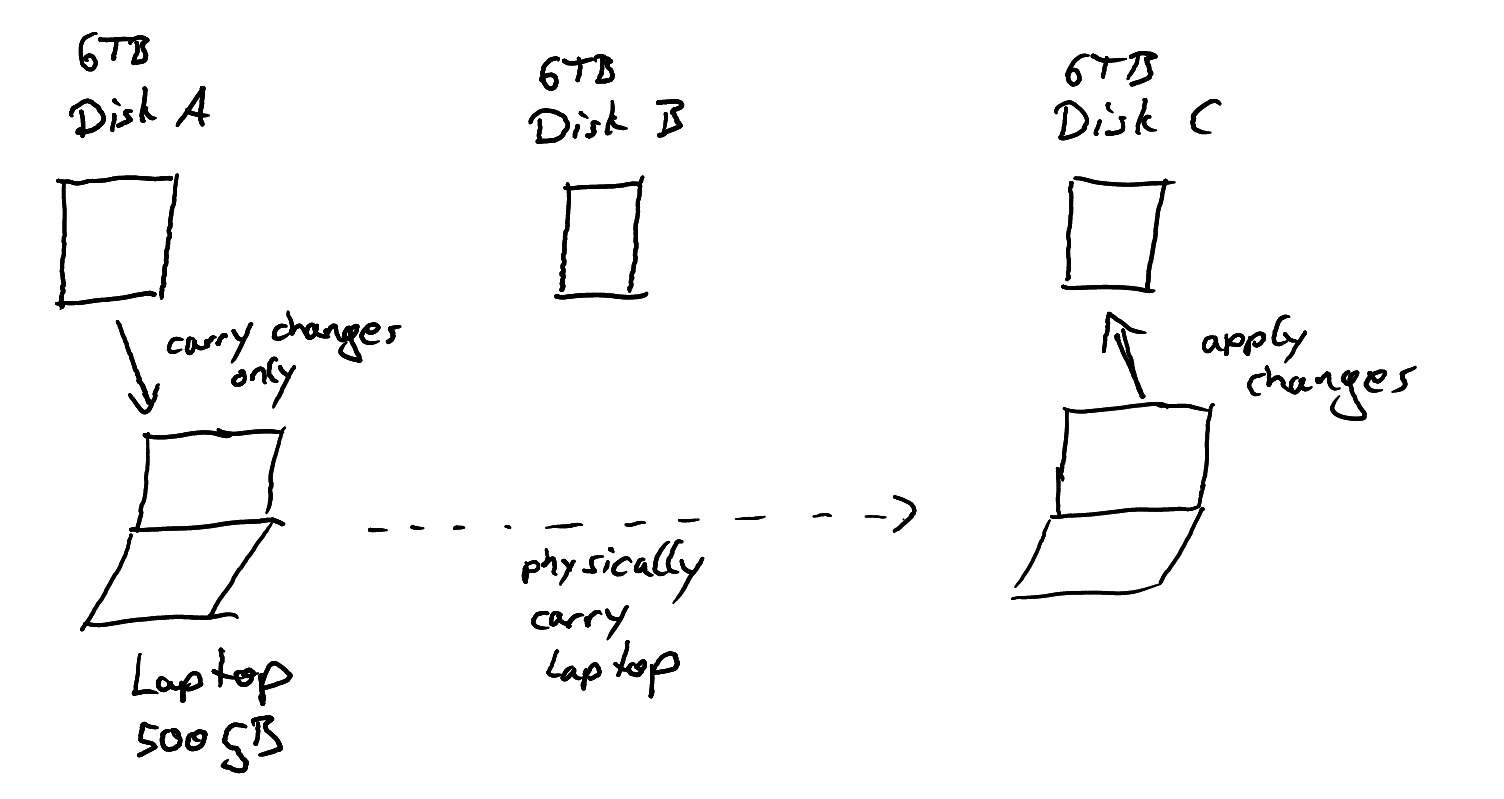 6TB
Disk A
6TB
Disk B
6TB
Disk C
carry changes
only
apply
changes
physically
carry
Laptop
Laptop
500 GB